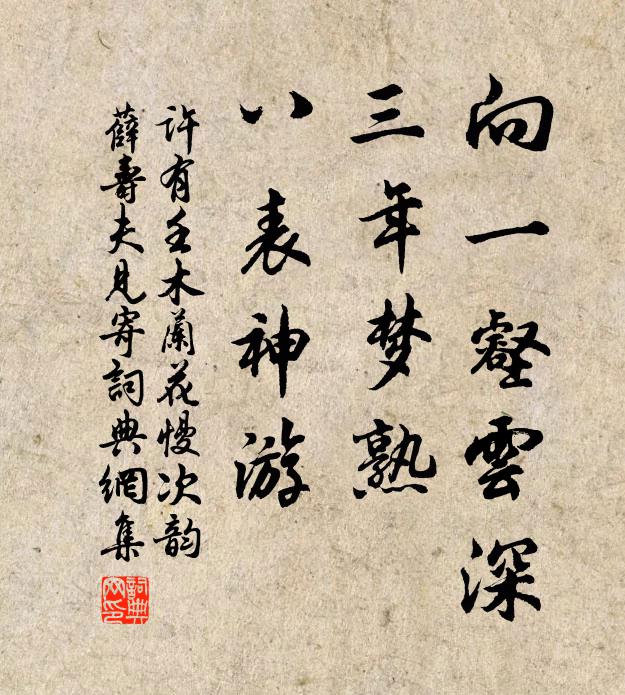 向一壑雲深
三年梦熟
八表神游
许有壬木蘭花慢次韵
薛壽夫見寄詞典網集
詞典网印